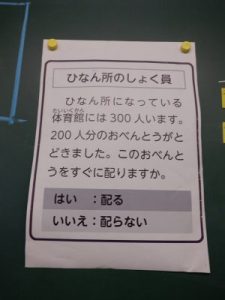 ひなん所のしょく員
ひなん所になっている
たいいくかん
体育館には300人います。
200人分のおべんとうがと
どきました。このおべんと
うをすぐに配りますか。
はい　：配る
いいえ：配らない